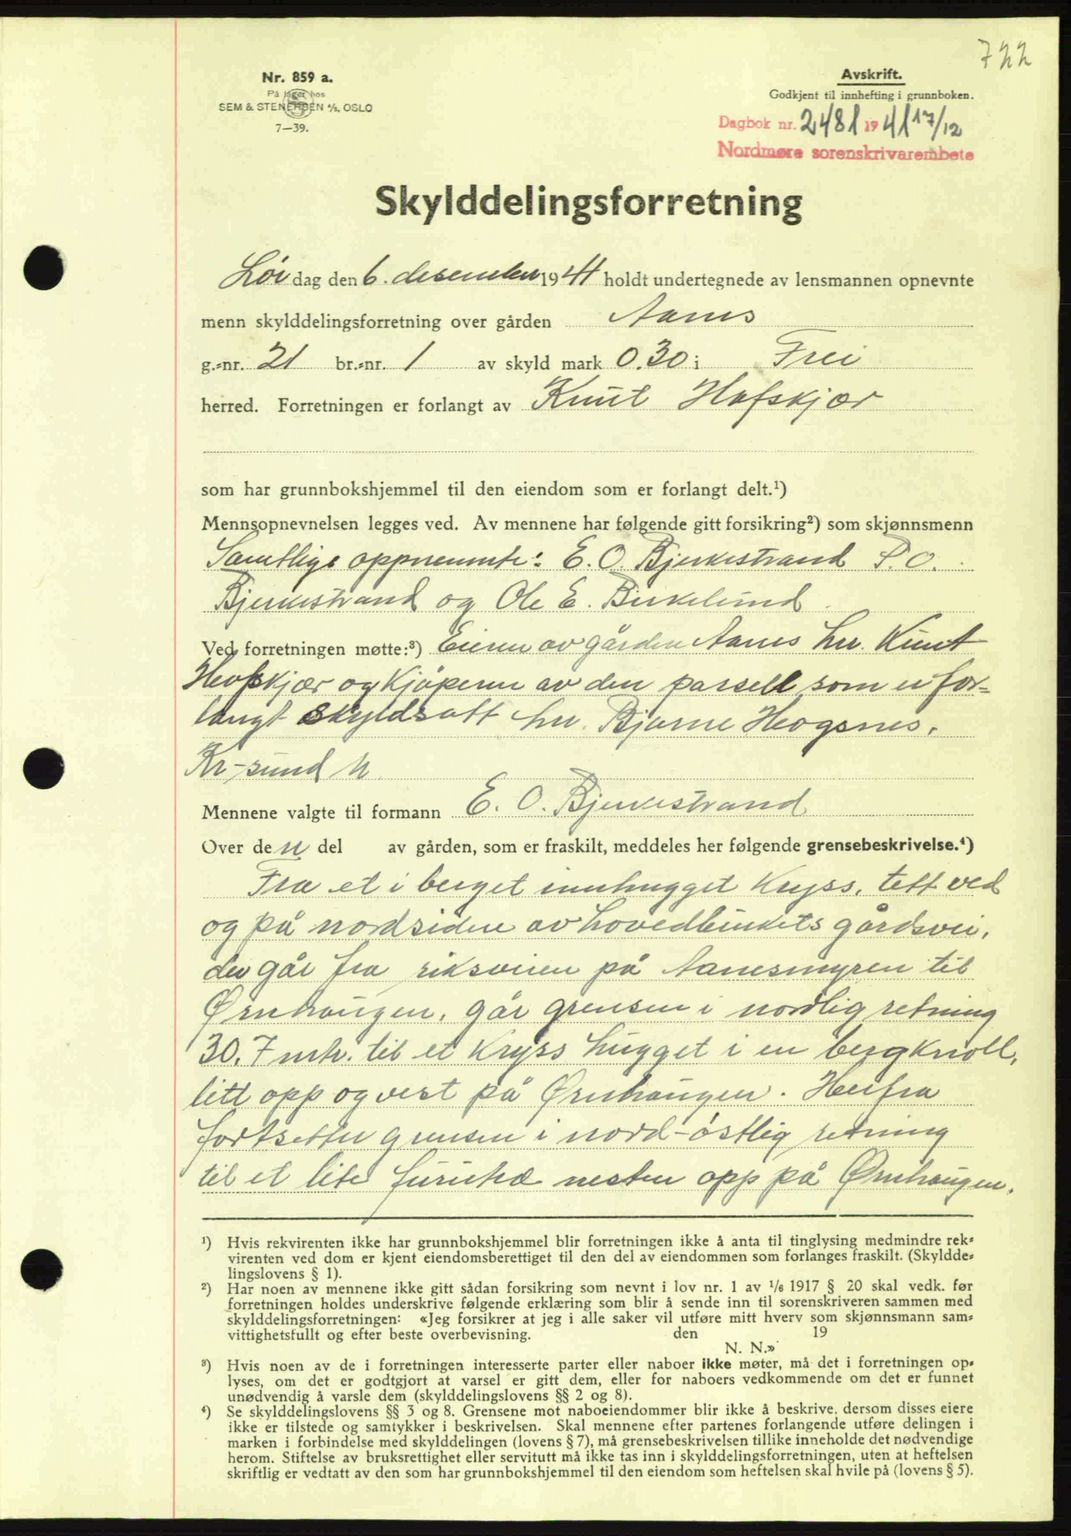 722
Nr. 859 a.
På lager hos
SEM & STENERSEN A/S, OSLO
7—39.
Avskrift.
Godkjent til innhefting i grunnboken.
Dagbok nr. 2481 1941 17/12
Nordmøre sorenskrivarembete
Skylddelingsforretning
Lør dag den 6. desember 1941 holdt undertegnede av lensmannen opnevnte
menn skylddelingsforretning over gården Aanes
g.=nr. 21 br.=nr. 1 av skyld mark 0.30 i Frei
herred. Forretningen er forlangt av Knut Hafskjær
som har grunnbokshjemmel til den eiendom som er forlangt delt.¹)
Mennsopnevnelsen legges ved. Av mennene har følgende gitt forsikring²) som skjønnsmenn
Samtlige oppnemnte: E. O. Bjerkestrand P. O.
Bjerkestrand og Ole E. Birkelund.
Ved forretningen møtte:³) Eieren av gården Aanes hr. Knut
Hafskjær og Kjøperen av den parsell som er for-
langt skyldsatt hr. Bjarne Hogsnes,
Kr-sund N
Mennene valgte til formann E. O. Bjerkestrand
Over den del av gården, som er fraskilt, meddeles her følgende grensebeskrivelse.⁴)
Fra et i berget innhugget Kryss, tett ved
og på nordsiden av hovedbrukets gårdsvei,
der går fra riksveien på Aanesmyren til
Ørnhaugen, går grensen i nordlig retning
30.7 mtr. til et Kryss hugget i en bergknoll,
litt opp og vest på Ørnhaugen. Herfra
fortsetter grensen i nord-østlig retning
til et lite furutre nesten opp på Ørnhaugen.
¹) Hvis rekvirenten ikke har grunnbokshjemmel blir forretningen ikke å anta til tinglysing medmindre rek=
virenten ved dom er kjent eiendomsberettiget til den del av eiendommen som forlanges fraskilt. (Skyldde=
lingslovens § 1).
²) Har noen av mennene ikke gitt sådan forsikring som nevnt i lov nr. 1 av 1/6 1917 § 20 skal vedk. før
forretningen holdes underskrive følgende erklæring som blir å sende inn til sorenskriveren sammen med
skylddelingsforretningen: «Jeg forsikrer at jeg i alle saker vil utføre mitt hverv som skjønnsmann sam=
vittighetsfullt og efter beste overbevisning. den 19
N. N.»
³) Hvis noen av de i forretningen interesserte parter eller naboer ikke møter, må det i forretningen op=
lyses, om det er godtgjort at varsel er gitt dem, eller for naboers vedkommende om det er funnet
unødvendig å varsle dem (skylddelingslovens §§ 2 og 8).
⁴) Se skylddelingslovens §§ 3 og 8. Grensene mot naboeiendommer blir ikke å beskrive, dersom disses eiere
ikke er tilstede og samtykker i beskrivelsen. Skal mennene efter partenes forlangende utføre delingen i
marken i forbindelse med skylddelingen (lovens § 7), må grensebeskrivelsen tillike inneholde det nødvendige
herom. Stiftelse av bruksrettighet eller servitutt må ikke tas inn i skylddelingsforretningen, uten at heftelsen
skriftlig er vedtatt av den som har grunnbokshjemmel til den eiendom som heftelsen skal hvile på (lovens § 5).